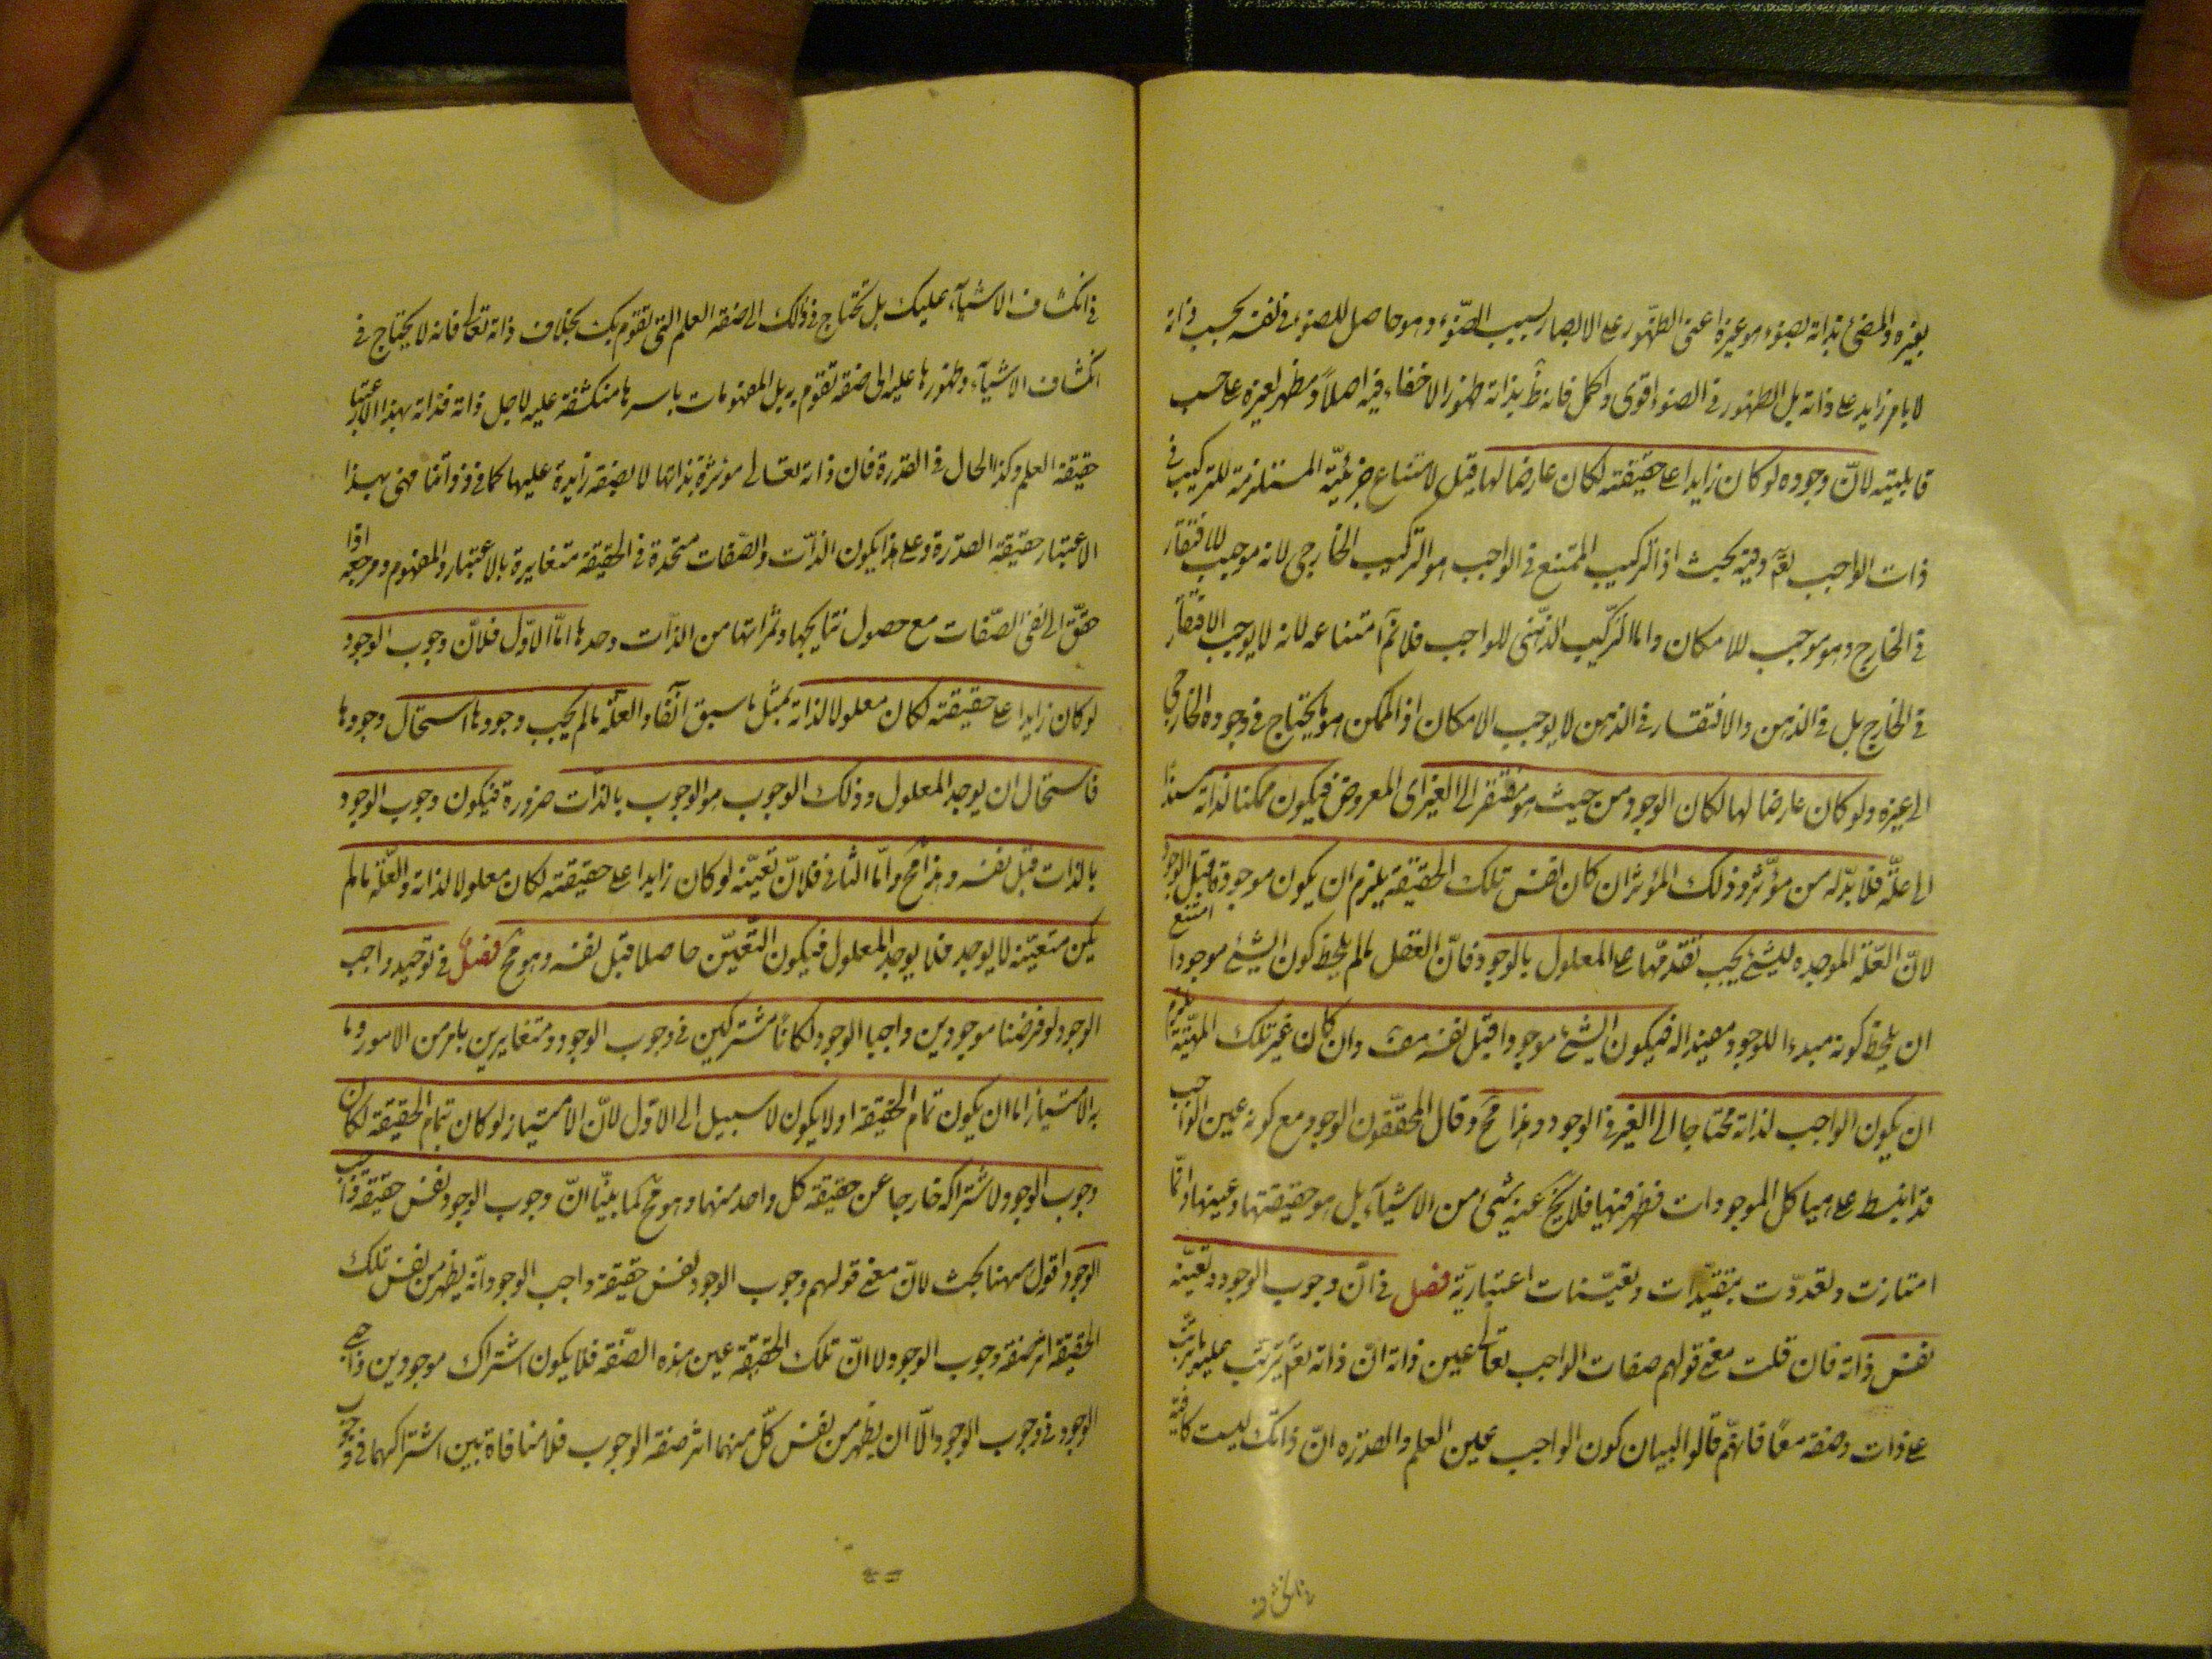 بغيره والمضئ بذاته بضوء هو غيره اعنى الظهور على الابصار بسبب الضوء وهو حاصل للضوء فى نفسه بحسب ذاته
لا بامر زايد على ذاته بل الظهور فى الضوء اقوى واكمل فانه ظ بذاته ظهورا لا خفاء فيه اصلا ومظهر لغيره على حسب
قابليته لانّ وجوده لو كان زايدا على حقيقته لكان عارضا لها قيل لامتناع جزئيّة المستلزمة للتركيب فى
ذات الواجب تعّ وفيه بحث اذ التركيب الممتنع فى الواجب هو التركيب الخارجى لانه موجب للافتقار
فى الخارج وهو موجب للامكان واما التركيب الذهنى للواجب فلا نم امتناعه لانه لا يوجب الافتقار
فى الخارج بل فى الذهن والافتقار فى الذهن لا يوجب الامكان اذ الممكن هو ما يحتاج فى وجوده الخارجى
الى غيره ولو كان عارضا لها لكان الوجود من حيث هو مفتقر الى الغير اى المعروض فيكون ممكنا لذاته مستندا
الى علّة فلا بدّ له من مؤثّر وذلك المؤثر ان كان نفس تلك الحقيقة يلزم ان يكون موجودة قبل الوجود
لانّ العّلة الموجده للشئ يجب تقدمّها على المعلول بالوجود فانّ العقل ما لم يلحظ كون الشئ موجودا امتنع
ان يلحظ كونه مبدءا للوجود مفيدا له فيكون الشئ موجودا قبل نفسه هف وان كان غير تلك المهيّة يلزم
ان يكون الواجب لذاته محتاجا الى الغير فى الوجود وهذا مح وقال المحقّقون الوجود مع كونه عين الواجب
قد انبسط على هياكل الموجودات فظهر فيها فلا يخ عنه شئ من الاشيآء بل هو حقيقتها وعينها وانّما
امتازت وتعدّدت بتقيّدات وتعيّنات اعتباريّة فصل فى انّ وجوب الوجود وتعيّنه
نفس ذاته فان قلت معنى قولهم صفات الواجب تعالى عين ذاته انّ ذاته تعّ يترتّب عليه ما يترتّب
على ذات وصفة معاً فانهّم قالوا لبيان كون الواجب عين العلم والقدره انّ ذاتك ليست كافية
فى انكشاف
فى انكشاف الاشيآء عليك بل تحتاج فى ذلك الى صفة العلم التى تقوم بك بخلاف ذاته تعالى فانه لا يحتاج فى
انكشاف الاشيآء وظهورها عليه الى صفة تقوم به بل المفهومات باسرها منكشفة عليه لاجل ذاته فذاته بهذا الاعتبار
حقيقة العلم وكذا الحال فى القدرة فان ذاته تعالى مؤثرة بذاتها لا بصفة زايدة عليها كما فى ذواتنا فهى بهذا
الاعتبار حقيقة القدرة وعلى هذا يكون الذات والصفات متحدة فى الحقيقة متغايرة بالاعتبار والمفهوم ومرجعه اذا
حقّق الى نفى الصّفات مع حصول نتايجها وثمراتها من الذات وحدها امّا الاوّل فلانّ وجوب الوجود
لو كان زايدا على حقيقته لكان معلولا لذاته بمثل ما سبق انفا والعلّة ما لم يجب وجودها استحال وجودها
فاستحال ان يوجد المعلول وذلك الوجوب هو الوجوب بالذات ضرورة فيكون وجوب الوجود
بالذات قبل نفسه وهذا مح وامّا الثانى فلانّ تعيّنه لو كان زايدا على حقيقته لكان معلولا لذاته والعلّة ما لم
يكن متعيّنه لا يوجد فلا يوجد المعلول فيكون التّعيّن حاصلا قبل نفسه وهو مح فصل فى توحيد واجب
الوجود لو فرضنا موجودين واجبا الوجود لكانا مشتركين فى وجوب الوجود ومتغايرين بامر من الامور وما
به الامتياز اما ان يكون تمام الحقيقة او لا يكون لا سبيل الى الاوّل لانّ الامتياز لو كان بتمام الحقيقة لكان
وجوب الوجود لاشتراكه خارجا عن حقيقة كل واحد منهما وهو مح كما بيّنا انّ وجوب الوجود نفس حقيقة واجب
الوجود اقول ههنا بحث لانّ معنى قولهم وجوب الوجود نفس حقيقة واجب الوجود انّه يظهر من نفس تلك
الحقيقة اثر صفة وجوب الوجود لا انّ تلك الحقيقة عين هذه الصّفة فلا يكون اشتراك موجودين واجبى
الوجود فى وجوب الوجود الّا ان يظهر من نفس كلّ منهما اثر صفة الوجوب فلا منافاة بين اشتراكهما فى وجوب